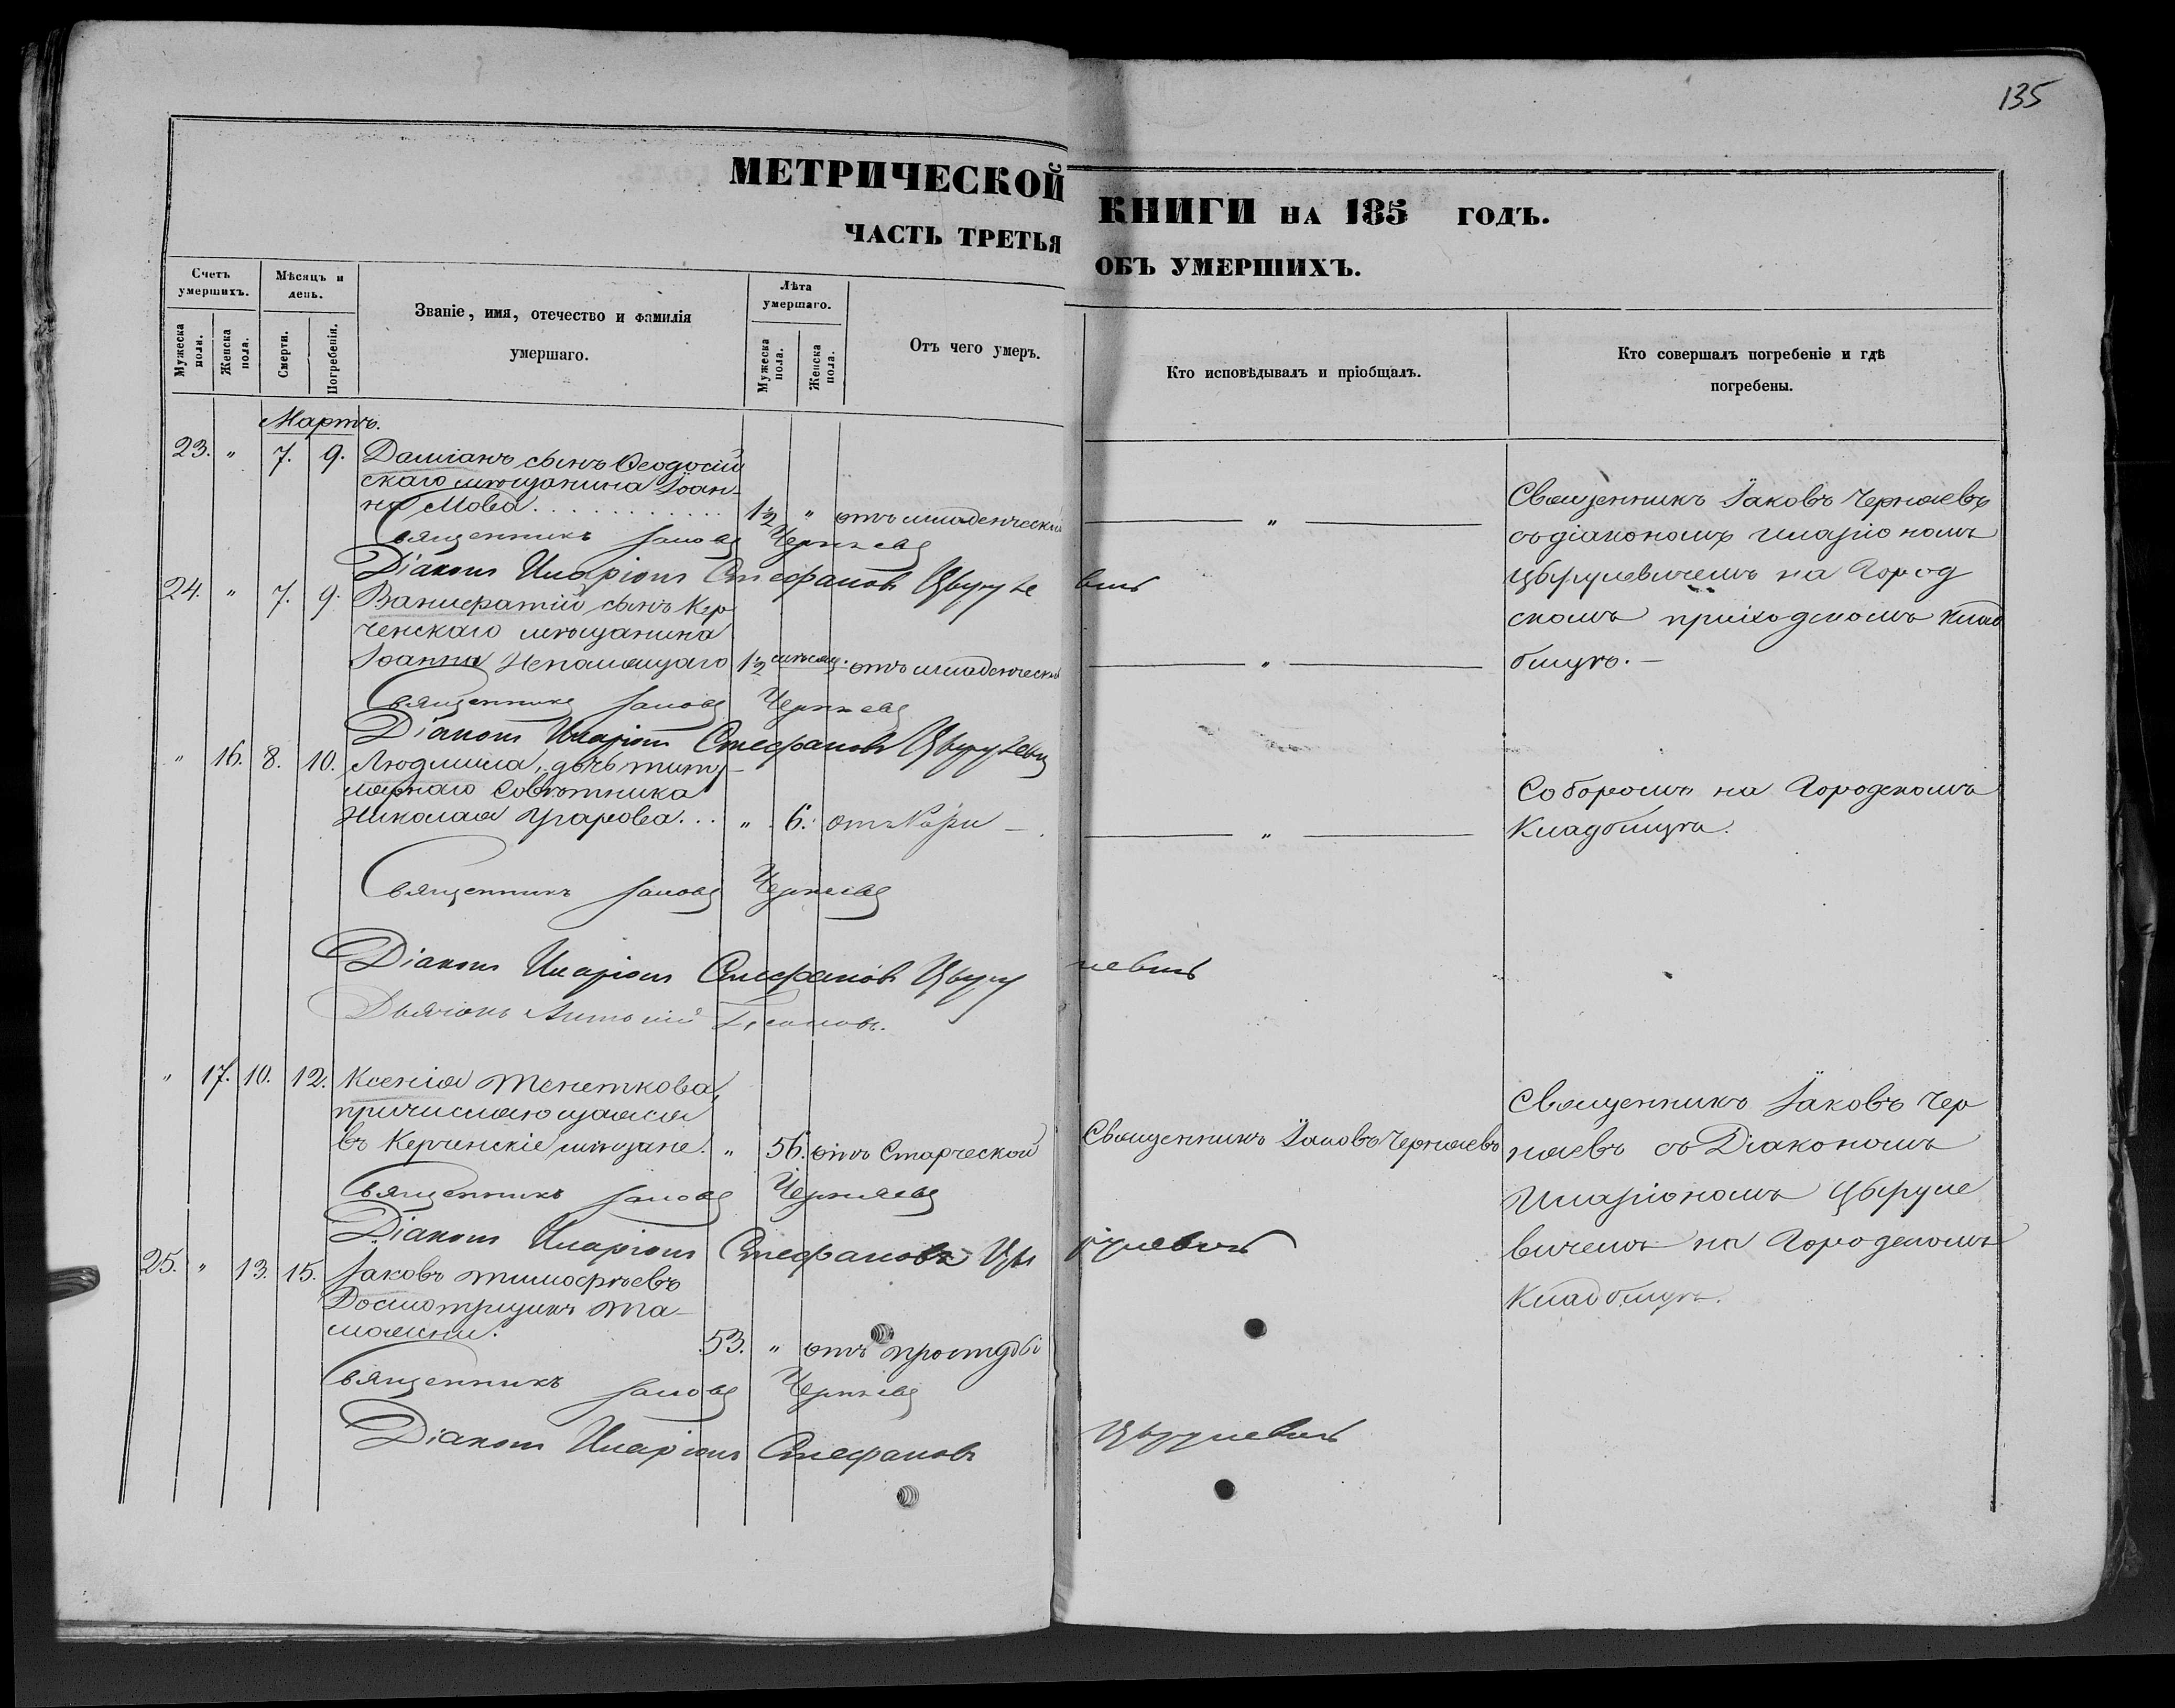 135
МЕТРИЧЕСКОЙ КНИГИ НА 185 ГОДЪ.
ЧАСТЬ ТРЕТЬЯ ОБЪ УМЕРШИХЪ.
Счетъ умершихъ.
Мужеска пола.
Женска пола.
Мѣсяцъ и день.
Смерти.
Погребенія.
Званіе, имя, отечество и фамилія умершаго.
Лѣта умершаго.
Мужеска пола.
Женска пола.
Отъ чего умеръ.
Кто исповѣдывалъ и пріобщалъ.
Кто совершалъ погребеніе и гдѣ погребены.
Мартъ.
23. " 7. 9. Даміанъ сынъ Ѳеодосій
скаго мѣщанина Іоан-
на Мова 1½ " отъ младенческой "
Священникъ Іаковъ Черняевъ
Діаконъ Иларіонъ Стефановъ Цырулевичъ
Священникъ Іаковъ Черняевъ
съ діакономъ Иларіономъ
Цырулевичемъ на Город
скомъ приходскомъ клад
бищѣ.
24. " 7. 9. сынъ Кер
ченскаго мѣщанина
Іоанна Непомнящаго 1½ мѣсяц. отъ младенческой "
Священникъ Іаковъ Черняевъ
Діаконъ Иларіонъ Стефановъ Цырулевичъ
" 16. 8. 10. Людмила, дочь титу-
лярнаго Совѣтника
Николая Угарова... " 6. отъ Кори "
Соборомъ на Городскомъ
Кладбищѣ.
Священникъ Іаковъ Черняевъ
Діаконъ Иларіонъ Стефановъ Цырулевичъ
Дьячокъ Антоній
" 17. 10. 12. Ксенія Тенеткова,
причисляющаяся
въ Керченскіе мѣщане. " 56. отъ Старческой Священникъ Іаковъ Черняевъ
Священникъ Іаковъ Черняевъ
Діаконъ Иларіонъ Стефановъ Цырулевичъ
Священникъ Іаковъ Чер
няевъ съ Діакономъ
Иларіономъ Цыруле
вичемъ на Городскомъ
Кладбищѣ.
25. " 13. 15. Іаковъ Тимофѣевъ
Досмотрщикъ Та-
можни. 53. " отъ простуды
Священникъ Іаковъ Черняевъ
Діаконъ Иларіонъ Стефановъ Цырулевичъ